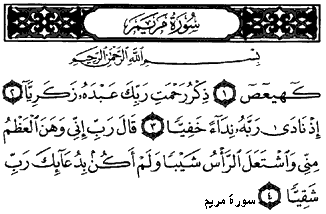 سُورَةُ مَرْيَم
بِسْمِ اللَّهِ الرَّحْمَٰنِ الرَّحِيمِ
كٓهيعٓصٓ ١ ذِكْرُ رَحْمَتِ رَبِّكَ عَبْدَهُۥ زَكَرِيَّآ ٢
إِذْ نَادَىٰ رَبَّهُۥ نِدَآءً خَفِيًّا ٣ قَالَ رَبِّ إِنِّى وَهَنَ ٱلْعَظْمُ
مِنِّى وَٱشْتَعَلَ ٱلرَّأْسُ شَيْبًا وَلَمْ أَكُنۢ بِدُعَآئِكَ رَبِّ
شَقِيًّا ٤ سورة مريم